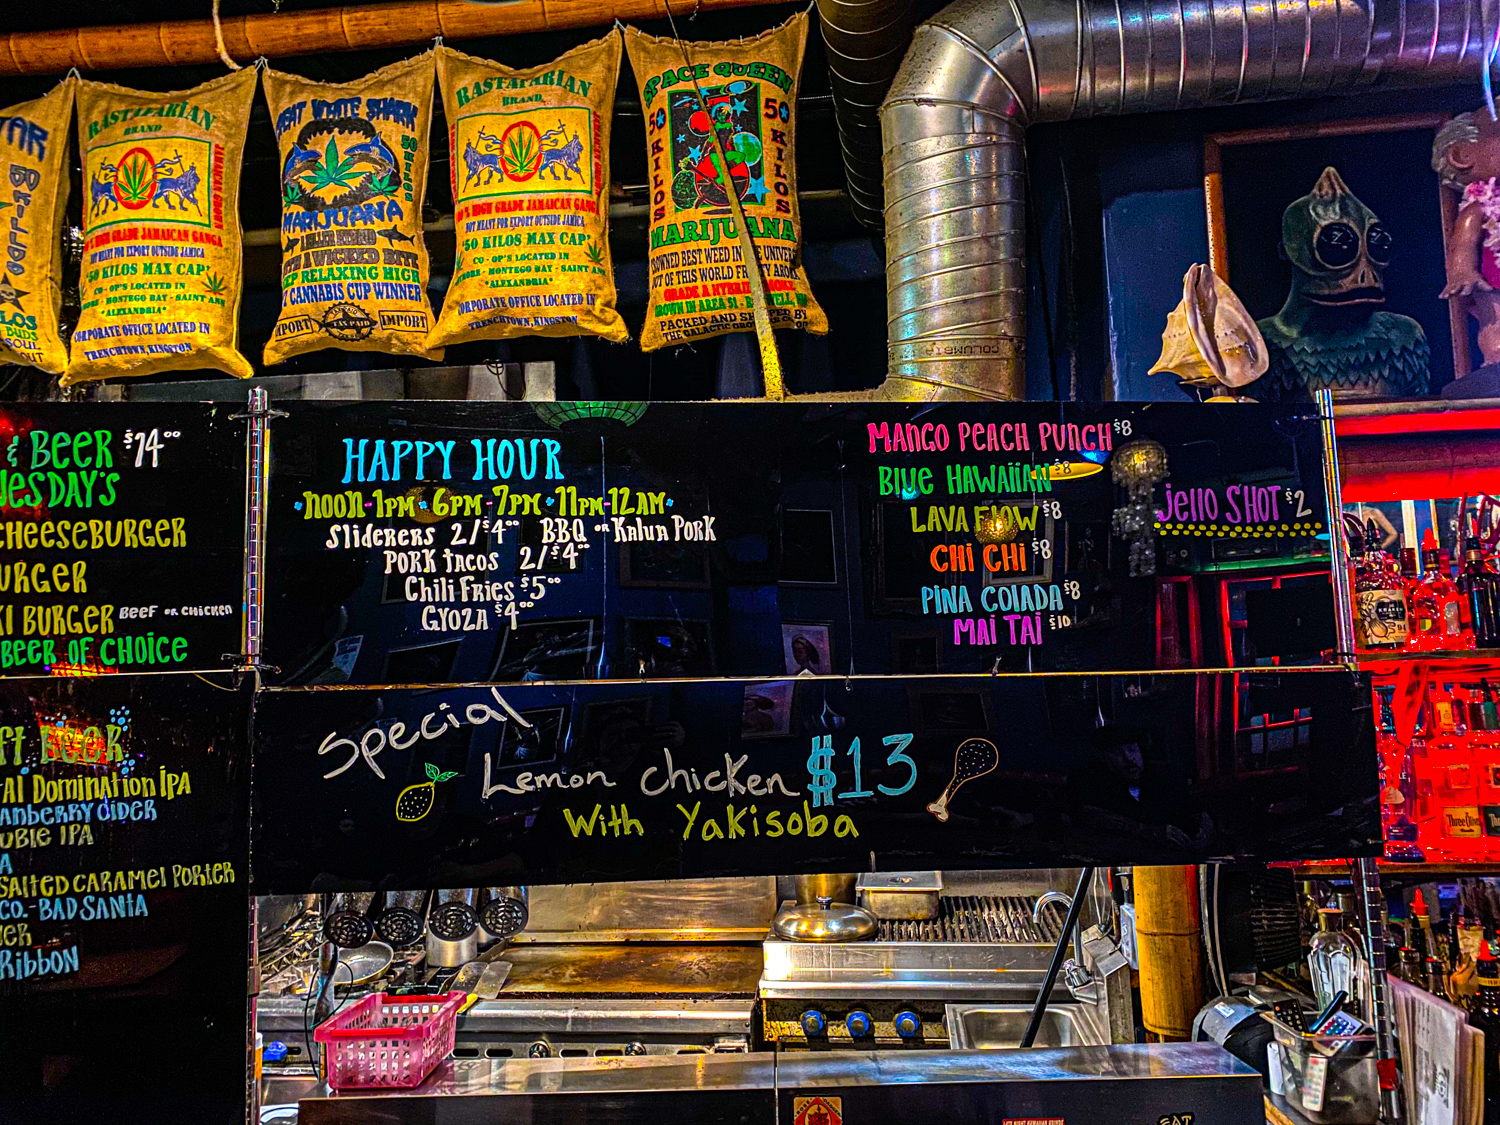 TAR
50 KILOS
BUDS
SOUL
OUT
RASTAFARIAN
BRAND
% HIGH GRADE JAMAICAN GANGA
NOT MEANT FOR EXPORT OUTSIDE JAMAICA
50 KILOS MAX CAP'
CO - OP'S LOCATED IN
MONTEGO BAY - SAINT ANN
"ALEXANDRIA"
CORPORATE OFFICE LOCATED IN
TRENCHTOWN, KINGSTON
GREAT WHITE SHARK
50 KILOS
MARIJUANA
A WICKED BITE
DEEP RELAXING HIGH
CANNABIS CUP WINNER
EXPORT
TAX PAID
IMPORT
RASTAFARIAN
BRAND
% HIGH GRADE JAMAICAN GANGA
NOT MEANT FOR EXPORT OUTSIDE JAMAICA
'50 KILOS MAX CAP'
CO - OP'S LOCATED IN
MONTEGO BAY - SAINT ANN
"ALEXANDRIA"
CORPORATE OFFICE LOCATED IN
TRENCHTOWN, KINGSTON
SPACE QUEEN
50 KILOS
50 KILOS
MARIJUANA
BEST WEED IN THE UNIVERSE
OUT OF THIS WORLD FRUITY AROMA
GRADE A HYBRID SMOKE
GROWN IN AREA 51 -
PACKED AND SHIPPED BY
THE GALACTIC
COLUMBIA
& BEER $14°°
CHEESEBURGER
URGER
KI BURGER BEEF OR CHICKEN
BEER OF CHOICE
HAPPY HOUR
NOON-1PM · 6PM-7PM · 11PM-12AM
Sliderers 2/$4°° BBQ OR Kalua PORK
PORK tacos 2/$4°°
Chili Fries $5°°
GYOZA $4°°
MANGO PEACH PUNCH $8
BLUE HAWAIIAN $8
LAVA FLOW $8
CHI CHI $8
PINA COLADA $8
MAI TAI $10
Jello SHOT $2
FT BEER
TAL DOMINATION IPA
ANBERRY CIDER
UBLE IPA
A
SALTED CARAMEL PORTER
CO.-BAD SANTA
ER
RIBBON
Special
Lemon chicken $13
With Yakisoba
KRAKEN
94
Three Olives
EAT